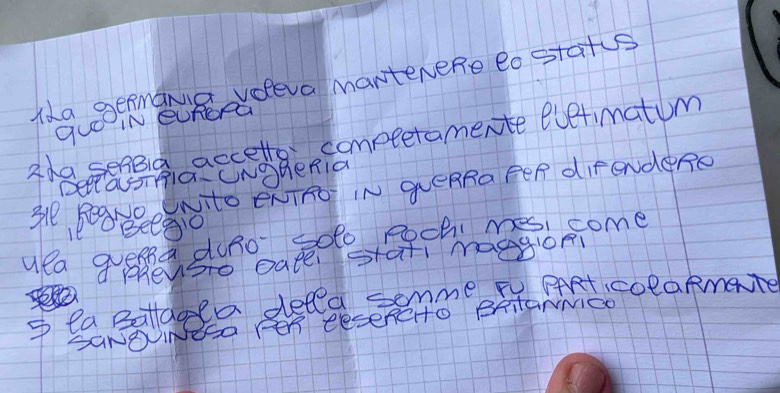 1 La GERMANIA voleva MANTENERE lo STATUS
QUO IN EUROPA
2 La SERBIA accettò completamente l'ultimatum
DELL'AUSTRIA-UNGHERIA
3 Il REGNO UNITO ENTRÒ IN GUERRA PER difendere
il BELGIO
4 la guerra durò solo pochi mesi come
PREVISTO DAGLI STATI MAGGIORI
5 la Battaglia della Somme fu PARTICOLARMENTE
SANGUINOSA PER l'ESERCITO BRITANNICO